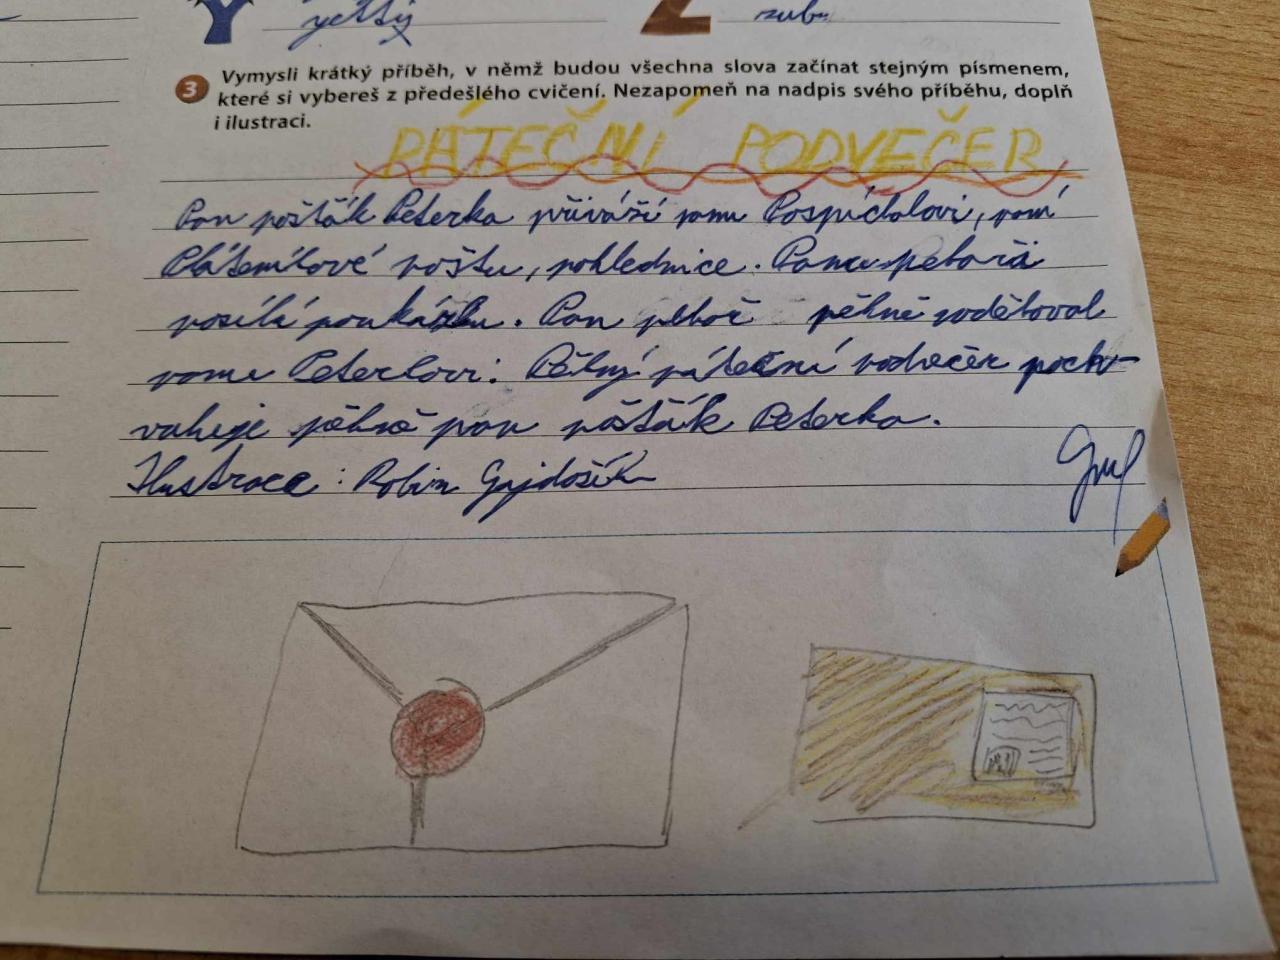 Y
yetty
Z
zub
3 Vymysli krátký příběh, v němž budou všechna slova začínat stejným písmenem,
které si vybereš z předešlého cvičení. Nezapomeň na nadpis svého příběhu, doplň
i ilustraci.
PÁTEČNÍ PODVEČER
Pan pošťák Peterka přiváží panu Pospíchalovi, paní
Pláteníkové poštu, pohlednice. Panu pekaři
posílá poukázku. Pan pekař pěkně poděkoval
panu Peterkovi. Pěkný páteční podvečer poch-
valuje pěkně pan pošťák Peterka.
Ilustrace: Robin Gajdošík